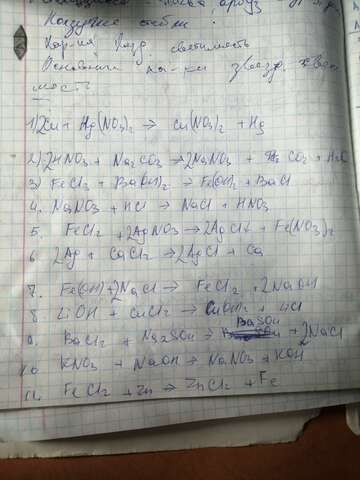 Казущие
светимость
Основни
звезд,
1) 2Cu + Hg(NO3)2 → Cu(NO3)2 + Hg
2) 2HNO3 + Na2CO3 → 2NaNO3 + CO2 + H2O
3) FeCl3 + Ba(OH)2 → Fe(OH)2 + BaCl
4. NaNO3 + HCl → NaCl + HNO3
5. FeCl2 + 2AgNO3 → 2AgCl + Fe(NO3)2
6. 2Ag + CaCl2 → 2AgCl + Ca
7. Fe(OH) + 2NaCl → FeCl2 + 2NaOH
8. LiOH + CuCl2 → Cu(OH)2 + LiCl
9. BaCl2 + Na2SO4 → BaSO4 + 2NaCl
10. KNO3 + NaOH → NaNO3 + KOH
11. FeCl2 + Zn → ZnCl2 + Fe